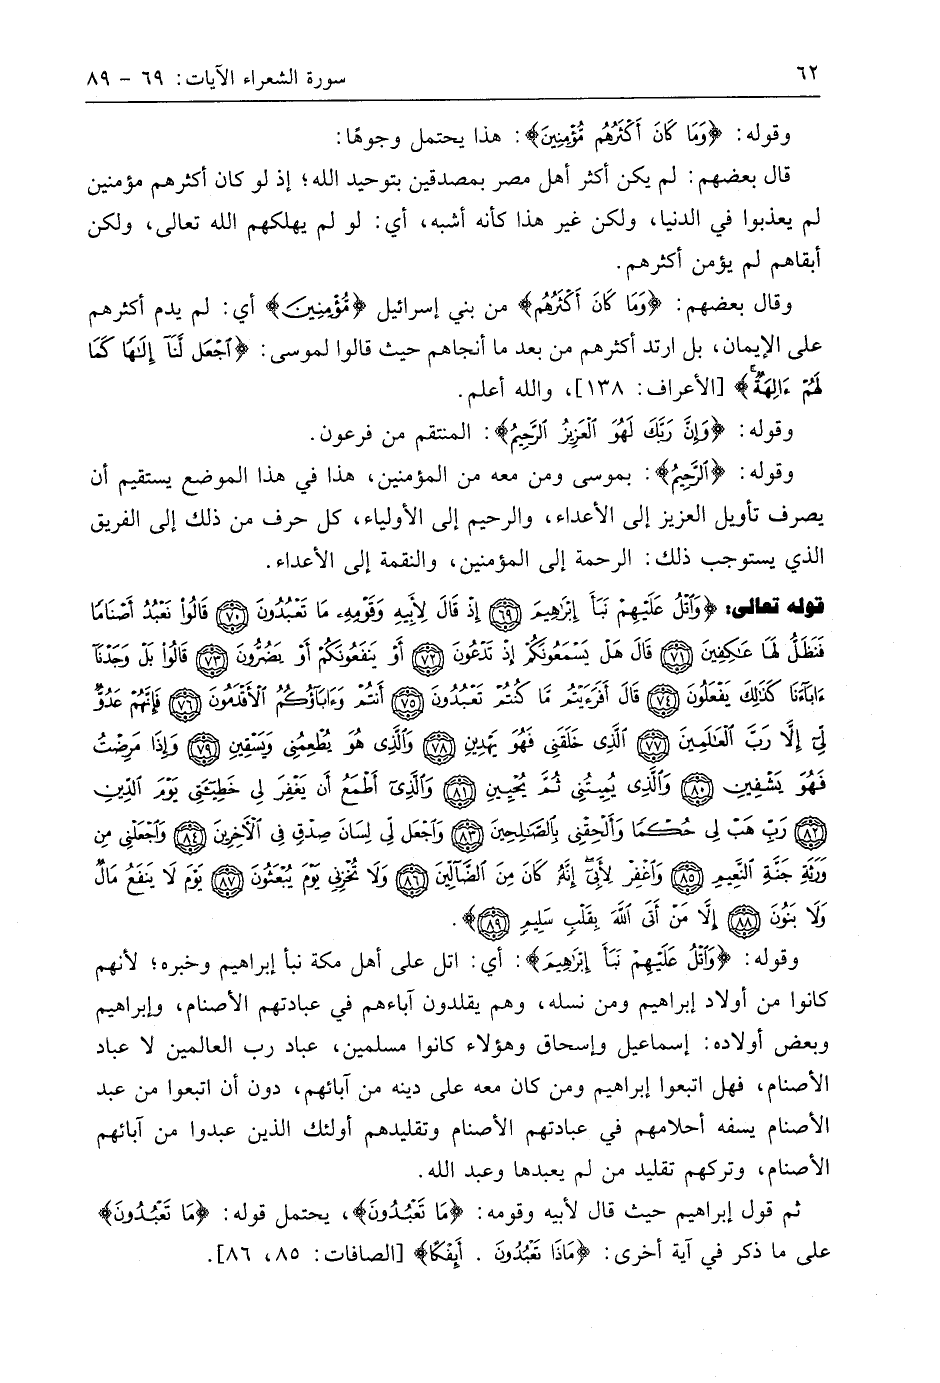 ٦٢
سورة الشعراء الآيات: ٦٩ - ٨٩
وقوله: ﴿وَمَا كَانَ أَكْثَرُهُم مُّؤْمِنِينَ﴾: هذا يحتمل وجوهًا:
قال بعضهم: لم يكن أكثر أهل مصر بمصدقين بتوحيد الله؛ إذ لو كان أكثرهم مؤمنين
لم يعذبوا في الدنيا، ولكن غير هذا كأنه أشبه، أي: لو لم يهلكهم الله تعالى، ولكن
أبقاهم لم يؤمن أكثرهم.
وقال بعضهم: ﴿وَمَا كَانَ أَكْثَرُهُم﴾ من بني إسرائيل ﴿مُّؤْمِنِينَ﴾ أي: لم يدم أكثرهم
على الإيمان، بل ارتد أكثرهم من بعد ما أنجاهم حيث قالوا لموسى: ﴿ٱجْعَل لَّنَآ إِلَٰهًا كَمَا
لَهُمْ ءَالِهَةٌ﴾ [الأعراف: ١٣٨]، والله أعلم.
وقوله: ﴿وَإِنَّ رَبَّكَ لَهُوَ ٱلْعَزِيزُ ٱلرَّحِيمُ﴾: المنتقم من فرعون.
وقوله: ﴿ٱلرَّحِيمُ﴾: بموسى ومن معه من المؤمنين، هذا في هذا الموضع يستقيم أن
يصرف تأويل العزيز إلى الأعداء، والرحيم إلى الأولياء، كل حرف من ذلك إلى الفريق
الذي يستوجب ذلك: الرحمة إلى المؤمنين، والنقمة إلى الأعداء.
قوله تعالى: ﴿وَٱتْلُ عَلَيْهِمْ نَبَأَ إِبْرَٰهِيمَ ﴿٦٩﴾ إِذْ قَالَ لِأَبِيهِ وَقَوْمِهِۦ مَا تَعْبُدُونَ ﴿٧٠﴾ قَالُوا۟ نَعْبُدُ أَصْنَامًا
فَنَظَلُّ لَهَا عَٰكِفِينَ ﴿٧١﴾ قَالَ هَلْ يَسْمَعُونَكُمْ إِذْ تَدْعُونَ ﴿٧٢﴾ أَوْ يَنفَعُونَكُمْ أَوْ يَضُرُّونَ ﴿٧٣﴾ قَالُوا۟ بَلْ وَجَدْنَآ
ءَابَآءَنَا كَذَٰلِكَ يَفْعَلُونَ ﴿٧٤﴾ قَالَ أَفَرَءَيْتُم مَّا كُنتُمْ تَعْبُدُونَ ﴿٧٥﴾ أَنتُمْ وَءَابَآؤُكُمُ ٱلْأَقْدَمُونَ ﴿٧٦﴾ فَإِنَّهُمْ عَدُوٌّ
لِّىٓ إِلَّا رَبَّ ٱلْعَٰلَمِينَ ﴿٧٧﴾ ٱلَّذِى خَلَقَنِى فَهُوَ يَهْدِينِ ﴿٧٨﴾ وَٱلَّذِى هُوَ يُطْعِمُنِى وَيَسْقِينِ ﴿٧٩﴾ وَإِذَا مَرِضْتُ
فَهُوَ يَشْفِينِ ﴿٨٠﴾ وَٱلَّذِى يُمِيتُنِى ثُمَّ يُحْيِينِ ﴿٨١﴾ وَٱلَّذِىٓ أَطْمَعُ أَن يَغْفِرَ لِى خَطِيٓـَٔتِى يَوْمَ ٱلدِّينِ
﴿٨٢﴾ رَبِّ هَبْ لِى حُكْمًا وَأَلْحِقْنِى بِٱلصَّٰلِحِينَ ﴿٨٣﴾ وَٱجْعَل لِّى لِسَانَ صِدْقٍ فِى ٱلْأَخِرِينَ ﴿٨٤﴾ وَٱجْعَلْنِى مِن
وَرَثَةِ جَنَّةِ ٱلنَّعِيمِ ﴿٨٥﴾ وَٱغْفِرْ لِأَبِىٓ إِنَّهُۥ كَانَ مِنَ ٱلضَّآلِّينَ ﴿٨٦﴾ وَلَا تُخْزِنِى يَوْمَ يُبْعَثُونَ ﴿٨٧﴾ يَوْمَ لَا يَنفَعُ مَالٌ
وَلَا بَنُونَ ﴿٨٨﴾ إِلَّا مَنْ أَتَى ٱللَّهَ بِقَلْبٍ سَلِيمٍ ﴿٨٩﴾﴾.
وقوله: ﴿وَٱتْلُ عَلَيْهِمْ نَبَأَ إِبْرَٰهِيمَ﴾: أي: اتل على أهل مكة نبأ إبراهيم وخبره؛ لأنهم
كانوا من أولاد إبراهيم ومن نسله، وهم يقلدون آباءهم في عبادتهم الأصنام، وإبراهيم
وبعض أولاده: إسماعيل وإسحاق وهؤلاء كانوا مسلمين، عباد رب العالمين لا عباد
الأصنام، فهل اتبعوا إبراهيم ومن كان معه على دينه من آبائهم، دون أن اتبعوا من عبد
الأصنام يسفه أحلامهم في عبادتهم الأصنام وتقليدهم أولئك الذين عبدوا من آبائهم
الأصنام، وتركهم تقليد من لم يعبدها وعبد الله.
ثم قول إبراهيم حيث قال لأبيه وقومه: ﴿مَا تَعْبُدُونَ﴾، يحتمل قوله: ﴿مَا تَعْبُدُونَ﴾
على ما ذكر في آية أخرى: ﴿مَاذَا تَعْبُدُونَ . أَئِفْكًا﴾ [الصافات: ٨٥، ٨٦].